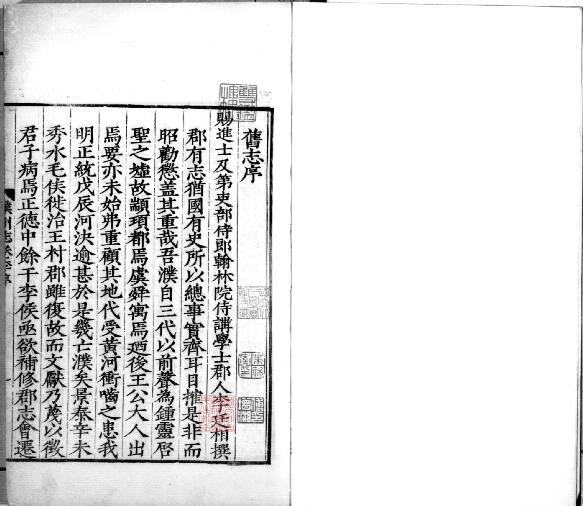 舊志序
賜進士及第吏部侍郎翰林院侍講學士郡人李廷相撰
郡有志猶國有史所以總事實齊耳目摧是非而
昭勸懲蓋其重哉吾濮自三代以前聲為鍾靈啓
聖之墟故顓頊都焉虞舜寓焉廼後王公大人出
焉要亦未始弗重顧其地代受黃河衝嚙之患我
明正統戊辰河決逾甚於是幾亡濮矣景泰辛未
秀水毛侯徙治王村郡雖復故而文厭乃蔑以徴
君子病焉正德中餘干李侯亟欲補修郡志會遷
濮州志
序